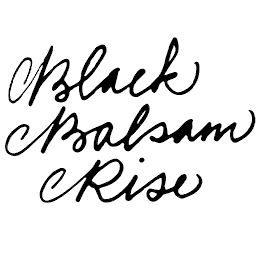 Black
Balsam
Rise